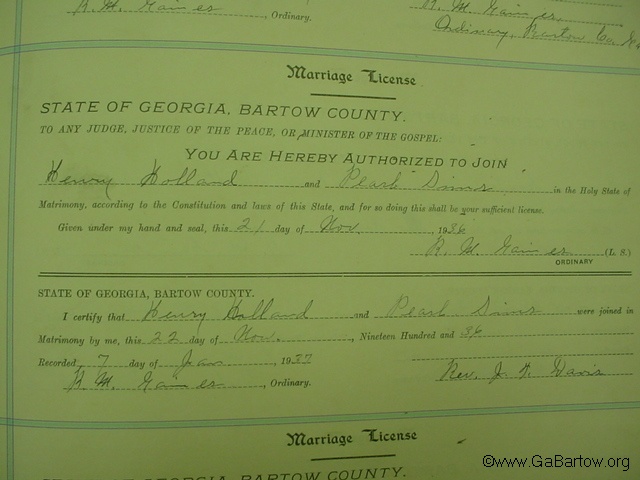 R. M. Gaines, Ordinary.
R. M. Gaines
Ordinary, Bartow Co. Ga
Marriage License
STATE OF GEORGIA, BARTOW COUNTY.
TO ANY JUDGE, JUSTICE OF THE PEACE, OR MINISTER OF THE GOSPEL:
YOU ARE HEREBY AUTHORIZED TO JOIN
Henry Holland and Pearl Sims in the Holy State of
Matrimony, according to the Constitution and laws of this State, and for so doing this shall be your sufficient license.
Given under my hand and seal, this 21 day of Nov. , 1936
R. M. Gaines (L. S.)
ORDINARY
STATE OF GEORGIA, BARTOW COUNTY.
I certify that Henry Holland and Pearl Sims were joined in
Matrimony by me, this 22 day of Nov. , Nineteen Hundred and 36
Recorded, 7 day of Jan , 1937
R. M. Gaines , Ordinary. Rev. J. Davis
Marriage License
STATE OF GEORGIA, BARTOW COUNTY.
©www.GaBartow.org